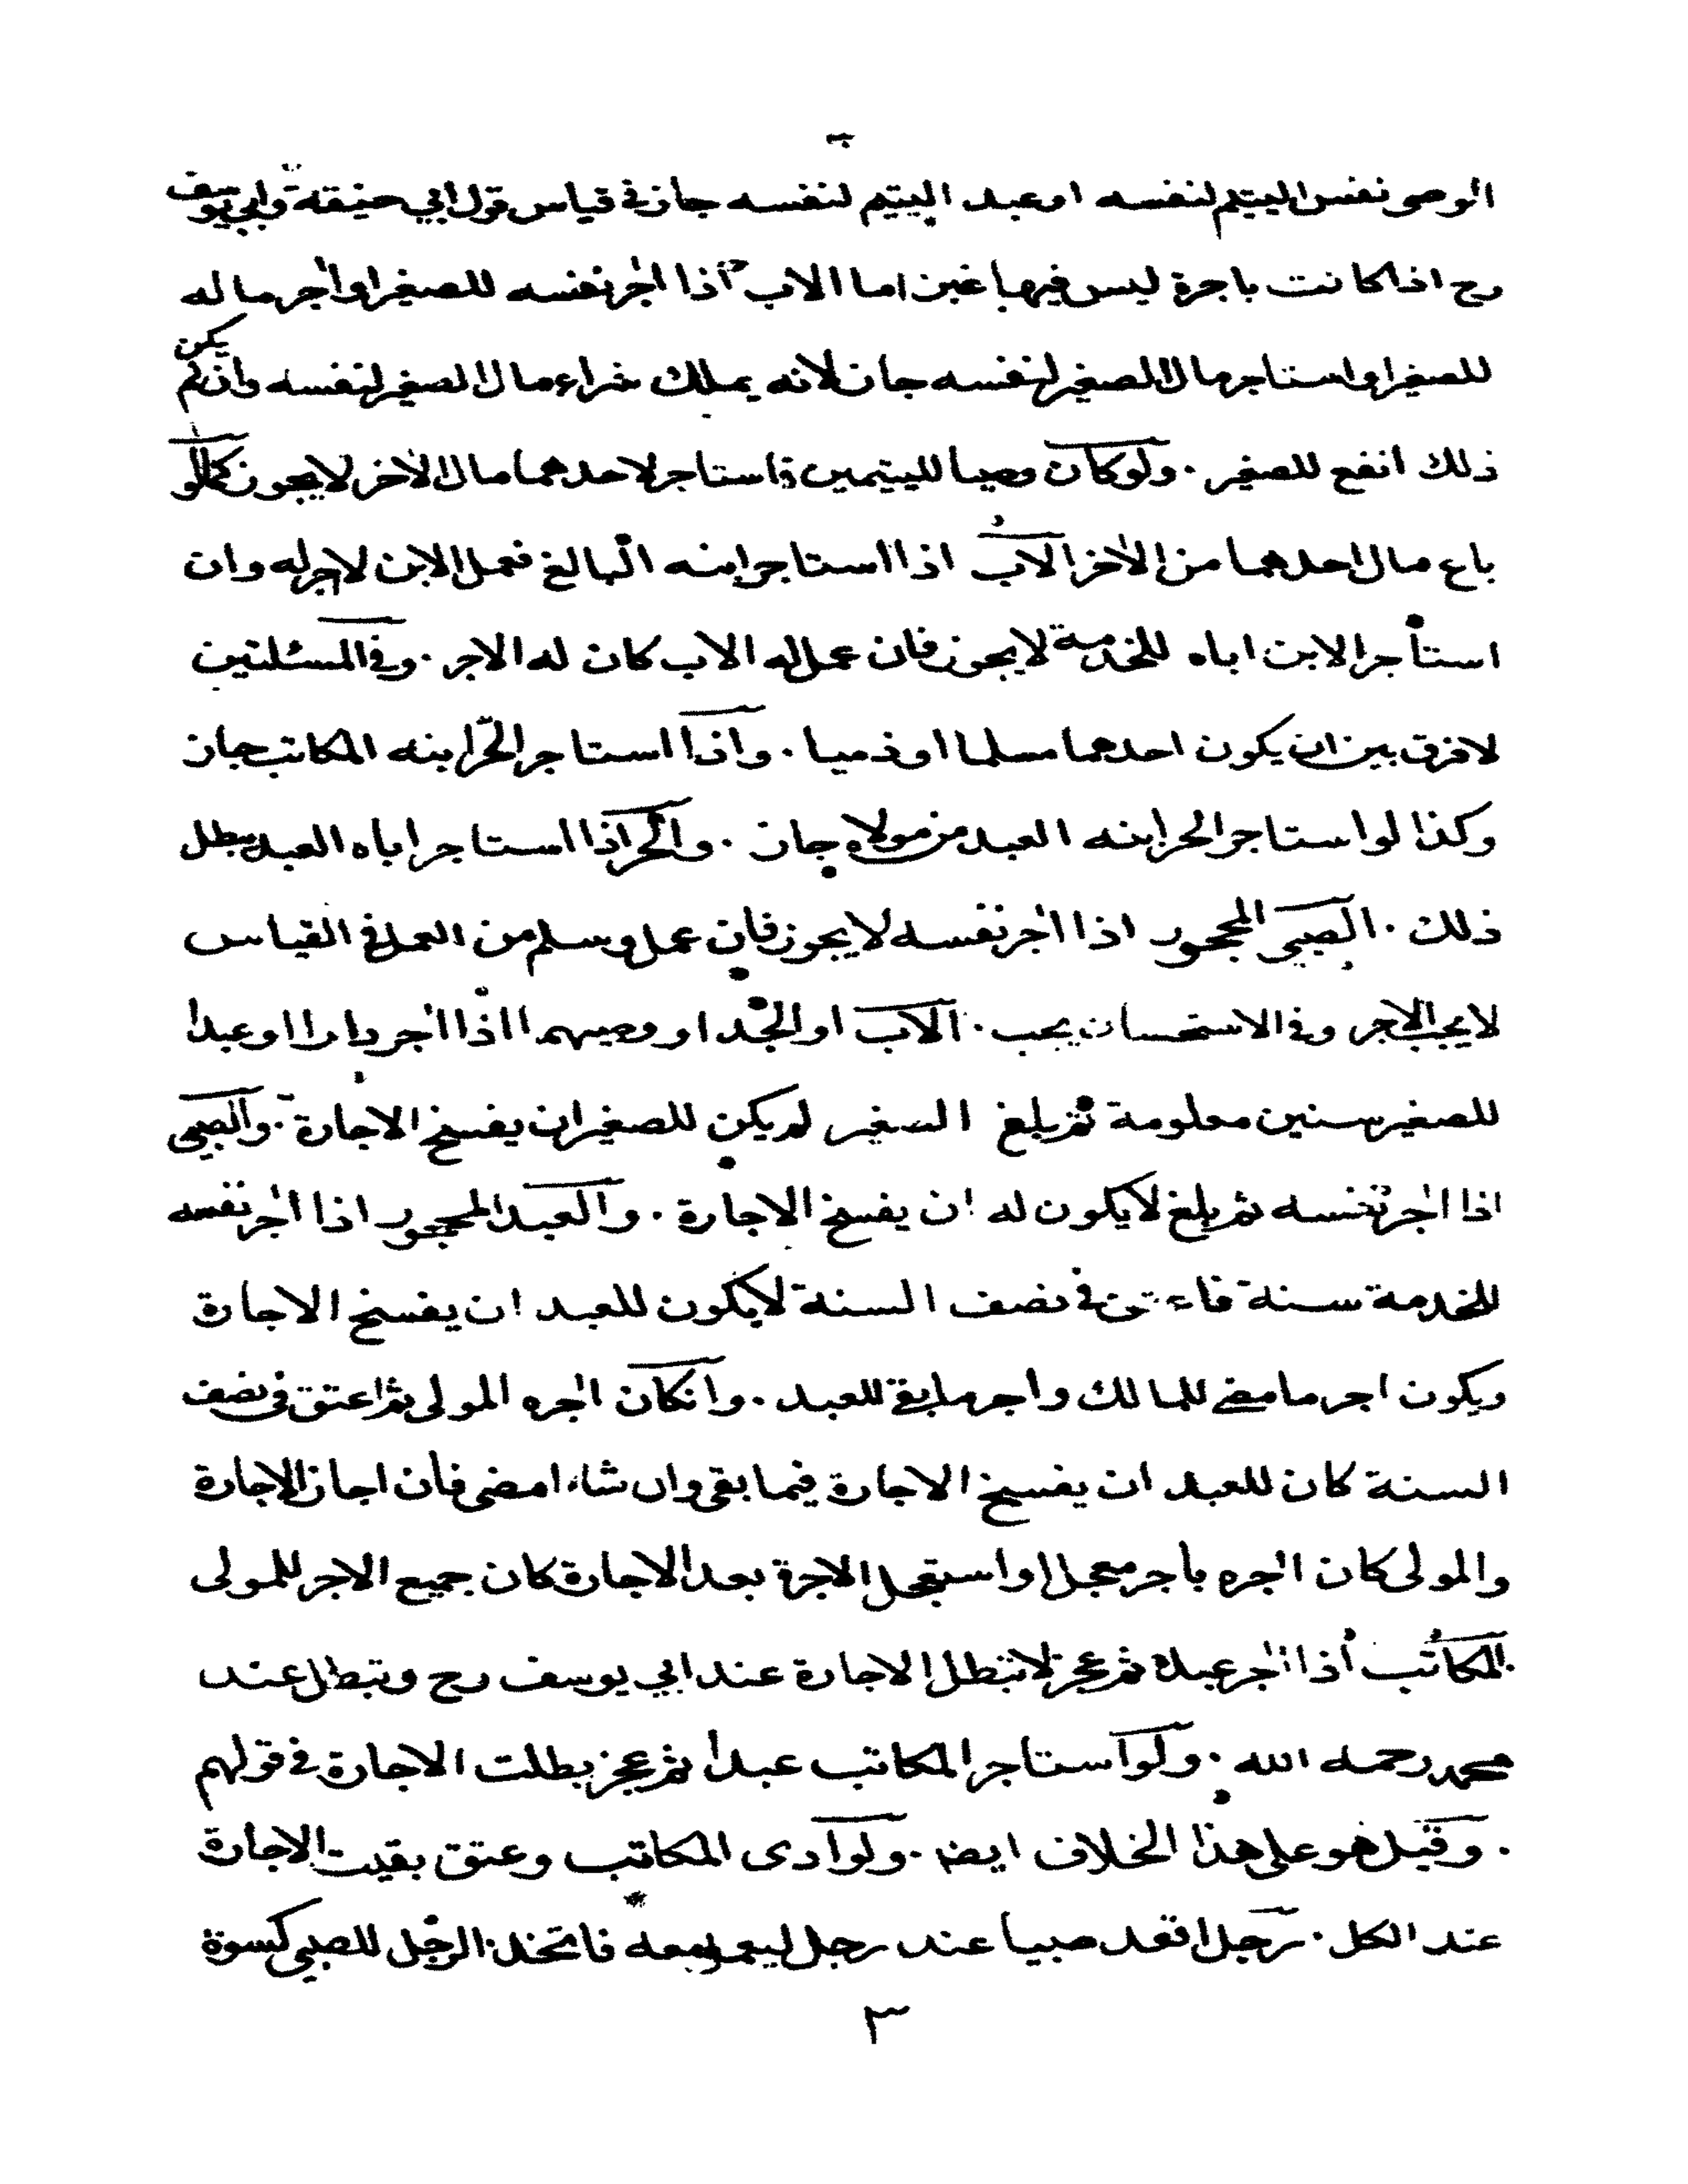 الوصى نفس اليتيم لنفسه او عبد اليتيم لنفسه جاز فى قياس قول ابي حنيفة وابي يوسف
رح اذا كانت باجرة ليس فيها غبن اما الاب اذا اٰجر نفسه للصغير او اٰجر ماله
للصغير او استاجر مال الصغير لنفسه جاز لانه يملك شراء مال الصغير لنفسه وان لم يكن
ذلك انفع للصغير . ولو كان وصيا لليتيمين فاستاجر لاحدهما مال الاٰخر لا يجوز كما لو
باع مال احدهما من الاٰخر الاب اذا استاجر ابنه البالغ فعمل الابن لا اجر له وان
استأجر الابن اباه للخدمة لا يجوز فان عمل له الاب كان له الاجر . وفى المسئلتين
لا فرق بين ان يكون احدهما مسلما او ذميا . واذا استاجر الحر ابنه المكاتب جاز
وكذا لو استاجر الحر ابنه العبد من مولاه جاز . والحر اذا استاجر اباه العبد يبطل
ذلك . الصبي المحجور اذا اٰجر نفسه لا يجوز فان عمل وسلم من العمل فى القياس
لا يجب الاجر وفى الاستحسان يجب . الاب او الجد او وصيهما اذا اٰجر دارا او عبدا
للصغير سنين معلومة ثم بلغ الصغير لم يكن للصغير ان يفسخ الاجارة . والصبي
اذا اٰجر نفسه ثم بلغ لا يكون له ان يفسخ الاجارة . والعبد المحجور اذا اٰجر نفسه
للخدمة سنة فى نصف السنة لا يكون للعبد ان يفسخ الاجارة
ويكون اجر ما مضى للمالك واجر ما بقى للعبد . وانكان اٰجره المولى ثم اعتق فى نصف
السنة كان للعبد ان يفسخ الاجارة فيما بقى وان شاء امضى فأن اجاز الاجارة
والمولى كان اٰجره بأجر معجل او استعجل الاجرة بعد الاجارة كان جميع الاجر للمولى
. المكاتب اذا اٰجر عبده ثم عجز لا تبطل الاجارة عند ابي يوسف رح وتبطل عند
محمد رحمه الله . ولو استاجر المكاتب عبدا ثم عجز بطلت الاجارة فى قولهم
. وقيل هو على هذا الخلاف ايضا . ولو ادى المكاتب وعتق بقيت الاجارة
عند الكل . رجل اقعد صبيا عند رجل ليعمل معه فاتخذ الرجل للصبي كسوة
٣